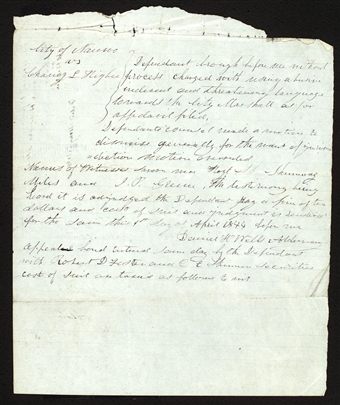 City of Nauvoo
vs
Chancy L. Higbee
Defendant brought before me without
process charged with using abusive
indecent and threatening language
towards the City Marshall as per
affidavit filed,
Defendants counsel made a motion to
dismiss generally for the want of jurisdi
ction motion overruled
Names of Witnesses sworn
Miles and J. P. Green, The testimony being
heard it is adjudged the Defendant pay a fine of ten
dollars and cost of suit and judgment is rendered
for the same this 1st day of April 1844 before me
Daniel H Wells Alderman
Appeal bond entered same day of the Defendant
with Robert D Foster and securities
cost of suit as taxed as follows to wit